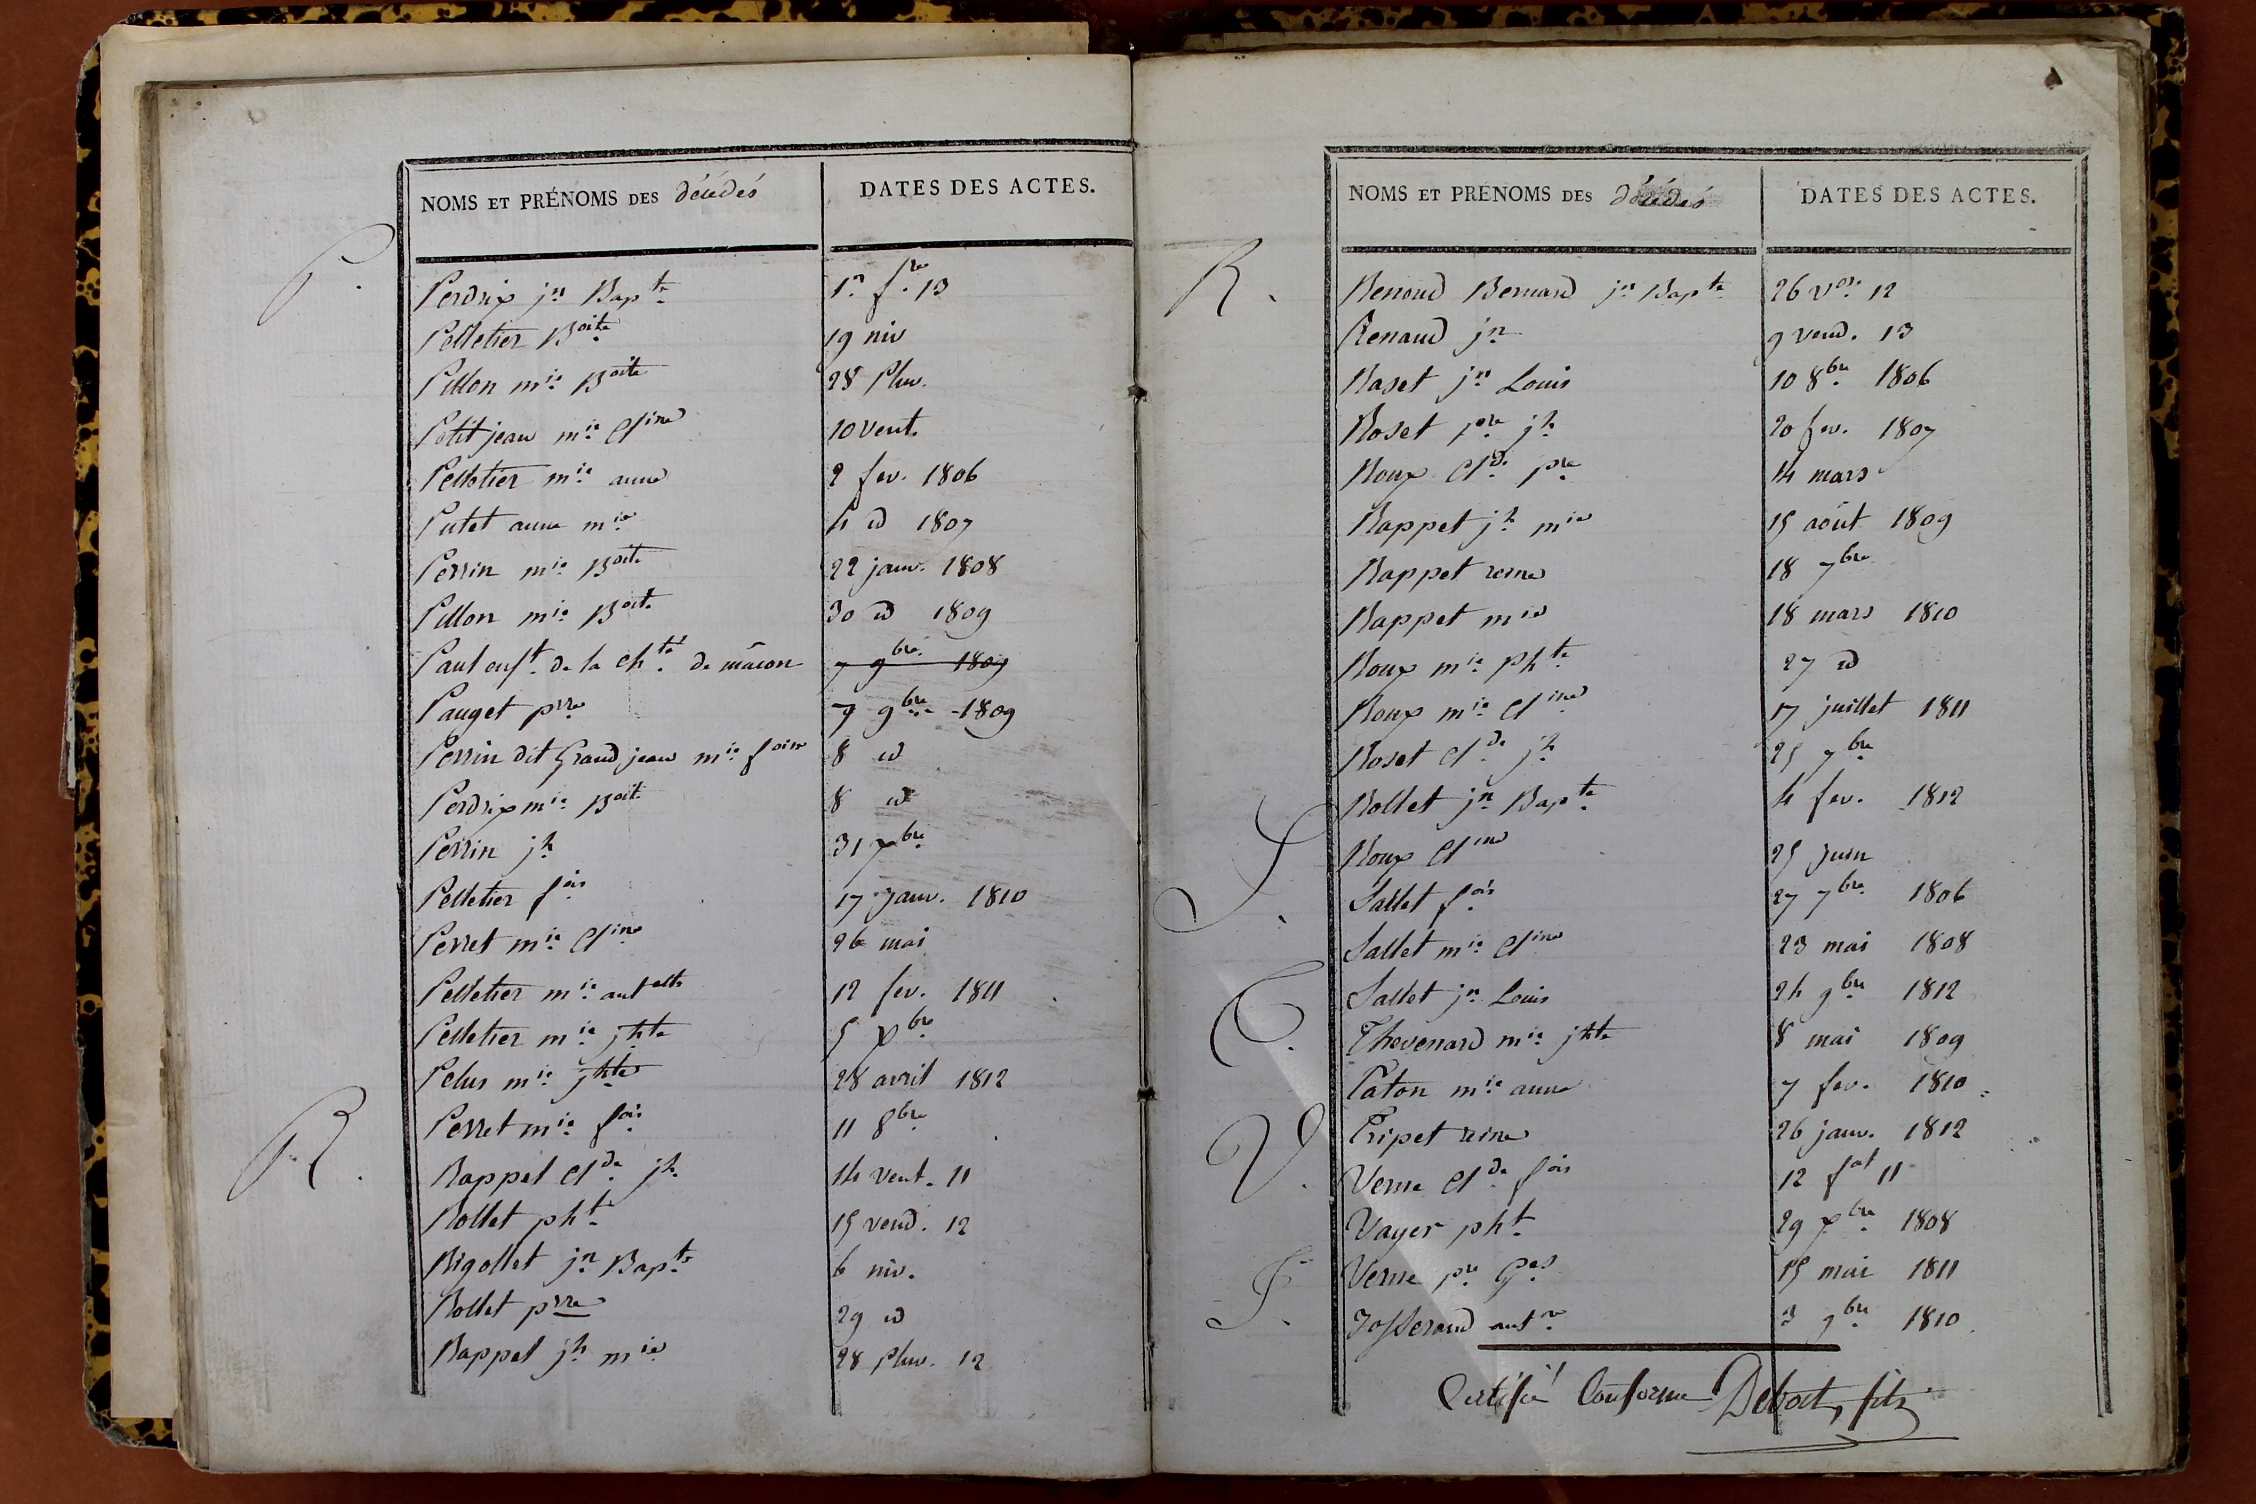 NOMS ET PRÉNOMS DES décédés DATES DES ACTES.
P.
Perdrix jn Bapte 1er fre 13
Pelletier Boite 19 niv
Pillon mie Boite 28 pluv.
Petit jean mie Cline 10 vent.
Pelletier mie anne 2 fev. 1806
Putet anne mie 4 id 1807
Perrin mie Boite 22 janv. 1808
Pillon mie Boite 30 id 1809
Paul enft de la chté de mâcon 7 9bre 1809
Pauget prre 7 9bre 1809
Perrin dit Grand jean mie foise 8 id
Perdrix mie Boite 8 id
Perrin jh 31 xbre
Pelletier fois 17 Janv. 1810
Perret mie Cline 26 mai
Pelletier mie antette 12 fev. 1811
Pelletier mie jhte 5 xbre
Pelus mie jhte 28 avril 1812
Perret mie fois 11 8bre
R.
Rappet Clde jh 14 vent. 11
Rollet phte 15 vend. 12
Rigollet jn Bapte 6 niv.
Rollet prre 29 id
Rappet jh mie 28 pluv. 12
NOMS ET PRÉNOMS DES décédés DATES DES ACTES.
R.
Renoud Bernard jn Bapte 26 12
Renaud jn 9 vend. 13
Raset jn Louis 10 8bre 1806
Roset pre jh 20 fev. 1807
Roux Clde pre 14 mars
Rappet jh mie 15 août 1809
Rappet reine 18 7bre
Rappet mie 18 mars 1810
Roux mie phte 27 id
Roux mie Cline 17 juillet 1811
Roset Clde jh 25 7bre
Rollet jn Bapte 4 fev. 1812
Roux Cline 25 Juin
S.
Sallet fois 27 7bre 1806
Sallet mie Cline 23 mai 1808
Sallet jn Louis 24 9bre 1812
T.
Thevenard mie jhte 8 mai 1809
Taton mie anne 7 fev. 1810
Tripet reine 26 janv. 1812
V.
Verne Clde fois 12 fal 11
Vayer pht 29 xbre 1808
Verne pre Ges 15 mai 1811
J.
Josserand antne 3 9bre 1810
Certifié Conforme Debost, fils